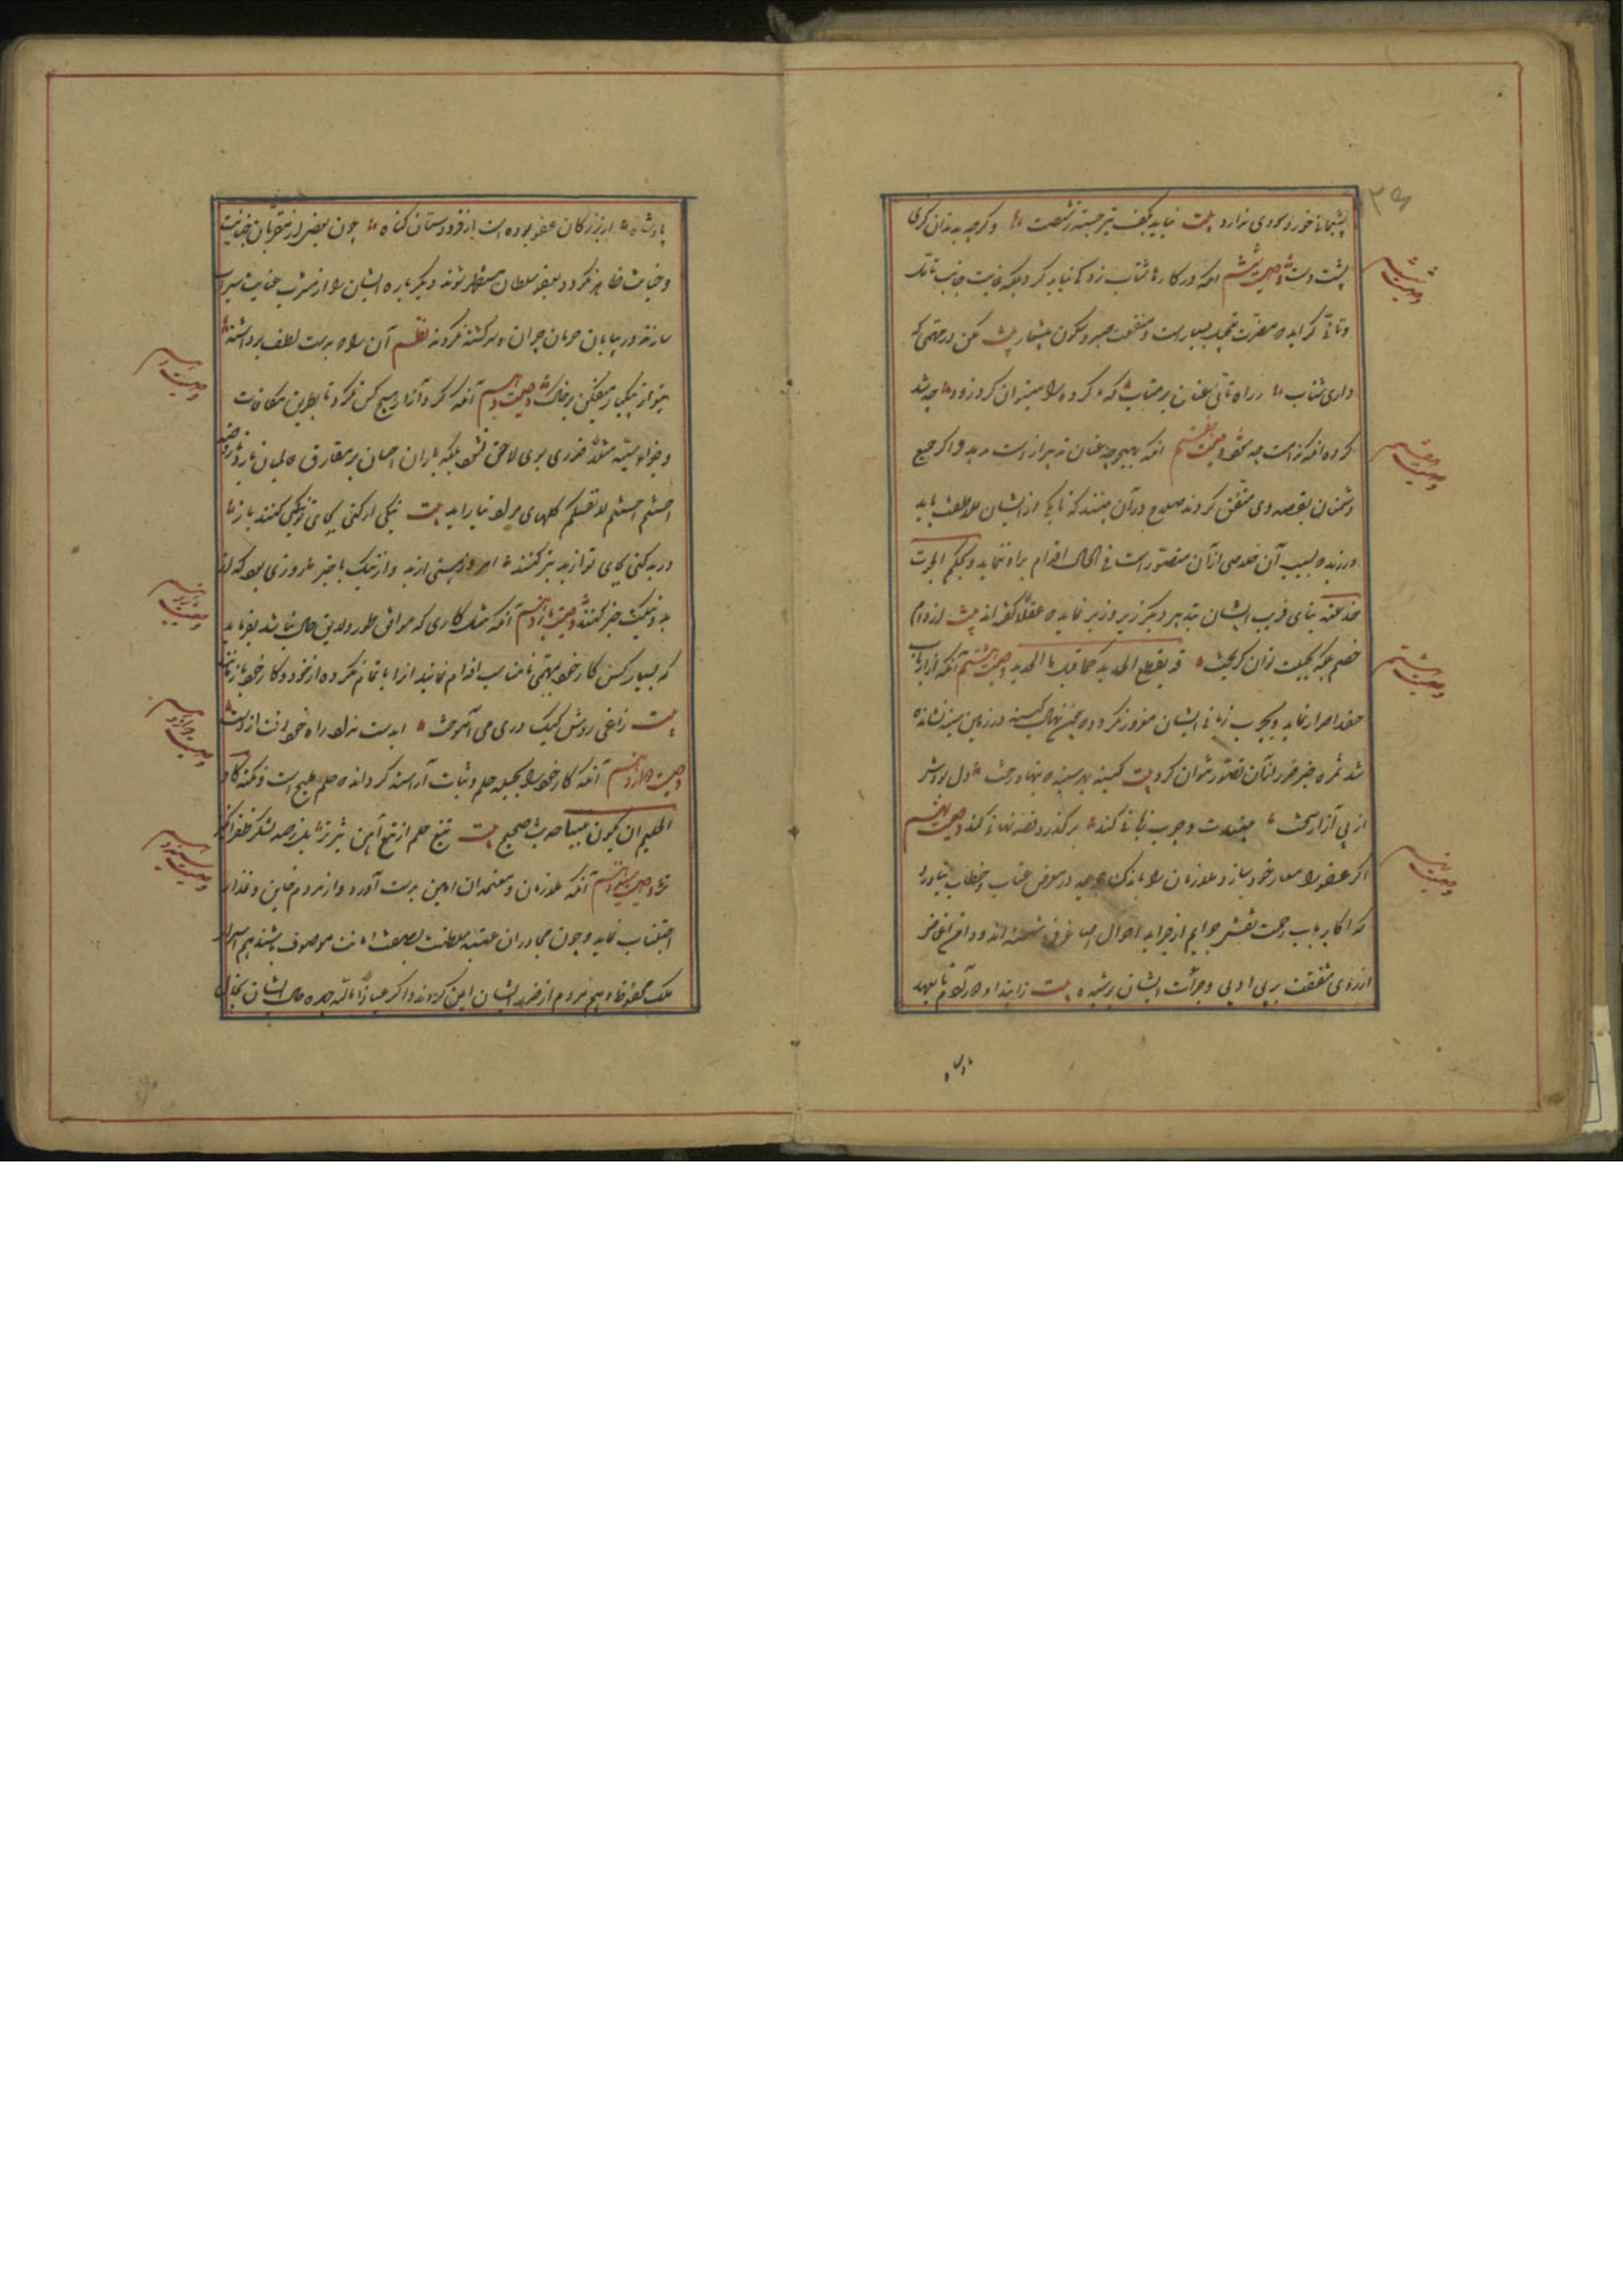 پشیمانی خورد و سودی ندارد بیت نیاید بکف تیر جسته ز شصت وگرچه بدندان گزی
پشت دست وصیت ششم آنکه در کارها شتاب زدگی نباید کرد بلکه بجانب تانی
و تانی گراید که مضرت تعجیل بسیارست و منفعت صبر و سکون بیشمار بیت مکن در مهمی که
داری شتاب ز راه تانی عنان بر متاب که ناکرده را میتوان کرد زود چو شد
کرده آنکه ندامت چه سود وصیت هفتم آنکه بهیچوجه عنان تدبیر از دست ندهد و اگر جمع
دشمنان بقصد وی متفق گردند و صلاح در آن بیند که با یکی از ایشان ملاطفت باید
ورزید و بسبب آن خلاصی از آن متصور است فی الحال اقدام بر او نماید و بحکم الحرب
خدعة بنای فریب ایشان بتدبیر دیگر زیر و زبر نماید که عقلا گفته اند بیت از دام
خصم بحیلت توان گریخت قد یقطع الحدید کما قیل بالحدید وصیت هشتم آنکه از ارباب
حقد احتراز نماید و بچرب زبانی ایشان مغرور نگردد که چون نهال کینه در زمین سینه نشانده
شد ثمره جز ضرر از آن تصور نتوان کرد بیت کینه در سینه نهاد رخت دل بودش
از پی آزار سخت بتو چرب زبانی کند بر گذرد قصد نهانی کند وصیت نهم
آنکه عفو را شعار خود سازد و ملازمان را باندک جریمه در معرض عتاب و خطاب نیاورد
که اکابر بآب رحمت نقش جرایم از جراید احوال اصاغر شسته اند و دامن اغماض
از روی شفقت بر بی ادبی و جرأت ایشان پوشیده بیت ز ابتدای دور آدم تا بعهد
پادشاه از بزرگان عفو بوده است از فرودستان گناه چون بعضی از مقربان بجنایت
و خیانت ظاهر گردد و بعفو سلطان مستظهر شوند دیگر باره ایشان را از مشرب عنایت سیراب
سازند و در بیابان حرمان حیران و سرگشته نگردند نظم آن را که بدست لطف برداشته
بنواز بیکبار میفکن بر خاک وصیت دهم آنکه گرد آزار هیچکس نگردد تا بطریق مکافات
و جزاء سیئة مثلها ضرری بوی لاحق نشود بلکه باران احسان بر مفارق عالمیان بارد تا در روضه
احسنتم احسنتم لانفسکم گلهای مراد ببار آید بیت نیکی ار کنی بجای تو نیکی کنند باز
ور بد کنی بجای تو از بد بتر کنند امروز هستی از بد و از نیک بیخبر روزی بود که از
بد و نیکت خبر کنند وصیت یازدهم آنکه میل کاری که موافق طور و لایق حال نباشد ننماید
که بسیار کس کار خود بگذاشته بمهمی نامناسب اقدام نمایند آنرا باتمام نکرده از خود و کار خود باز مانند
بیت زاغی روش کبک دری می آموخت آن دست نداد و راه خود رفت از دست
وصیت دوازدهم آنکه کار خود را بحلیه حلم و ثبات آراسته گرداند که حلم ملیح است و نکته کاد
الحلیم ان یکون نبیا حدیث صحیح بیت تیغ حلم از تیغ آهن تیزتر بل ز صد لشکر ظفر انگیز
تر وصیت سیزدهم آنکه ملازمان و معتمدان امین بدست آورد و از مردم خاین و غدار
اجتناب نماید و چون مجاوران عتبه سلطنت بصفت امانت موصوف باشند هم اسرار
ملک محفوظ و هم مردم از ضرر ایشان ایمن گردند و اگر عیاذا بالله چهره حال ایشان بخال
وصیت ششم
وصیت هفتم
وصیت هشتم
وصیت نهم
وصیت دهم
وصیت یازدهم
وصیت دوازدهم
وصیت سیزدهم